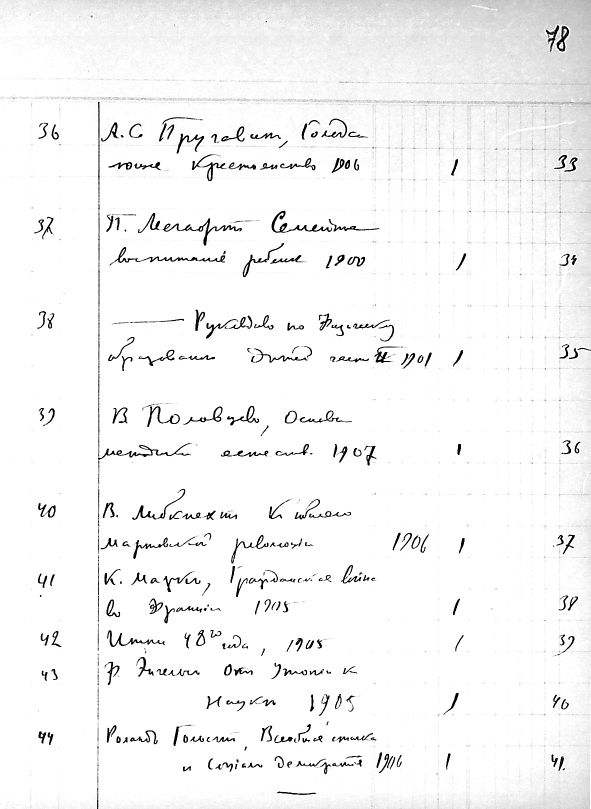 78
36 А. С Пругавин, Голода
ющее крестьянство 1906 1 33
37 П. Лесгафтъ Семейное
воспитание ребенка 1900 1 34
38 —— Руководство по Физическому
образованию Детей часть II 1901 1 35
39 В Половцев, Основы
методики естеств. 1907 1 36
40 В. Либкнехт К юбилею
мартовской революции 1906 1 37
41 К. Маркс, Гражданская война
во Франции 1905 1 38
42 48го года, 1905 1 39
43 Ф Энгельс Отъ Утопии к
Науке 1905 1 40
44 Роландъ Гольстъ, Всеобщая стачка
и Социал Демократия 1906 1 41.